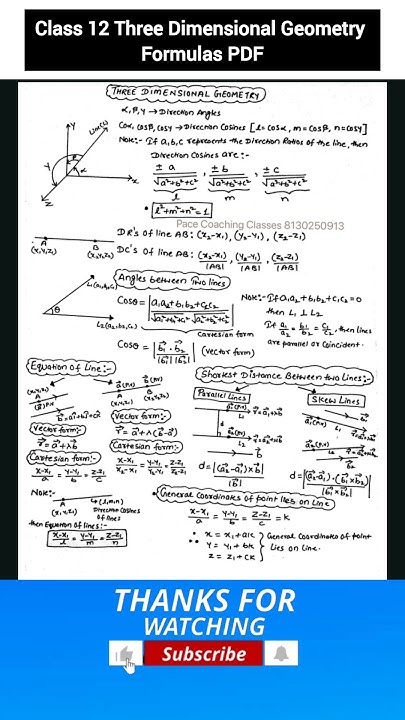 Class 12 Three Dimensional Geometry
Formulas PDF
THREE DIMENSIONAL GEOMETRY
α, β, γ → Direction Angles
Cosα, Cosβ, Cosγ → Direction Cosines [l = Cosα, m = Cosβ, n = Cosγ]
Note:- If a, b, c represents the Direction Ratios of the line, then
Direction Cosines are:-
± a / √a²+b²+c² , ± b / √a²+b²+c² , ± c / √a²+b²+c²
l m n
• l²+m²+n² = 1
Pace Coaching Classes 8130250913
Y
X
Z
A
(x₁,y₁,z₁)
B
(x₂,y₂,z₂)
DR's of line AB: (x₂-x₁), (y₂-y₁), (z₂-z₁)
DC's of line AB: (x₂-x₁)/|AB|, (y₂-y₁)/|AB|, (z₂-z₁)/|AB|
Angles between Two lines
L₁(a₁,b₁,c₁)
θ
L₂(a₂,b₂,c₂)
Cosθ = |a₁a₂+b₁b₂+c₁c₂ / √a²+b²+c² √a²+b²+c²|
Cartesian form
Cosθ = |b₁·b₂ / |b₁||b₂|| (Vector form)
Note:- If a₁a₂+b₁b₂+c₁c₂=0
then L₁ ⊥ L₂
If a₁/a₂ = b₁/b₂ = c₁/c₂, then lines
are parallel or Coincident.
Equation of Line:-
Vector form:-
r⃗ = a⃗+λb⃗
Cartesian form:-
x-x₁/a = y-y₁/b = z-z₁/c
Vector form:-
r⃗ = a⃗+λ(b⃗-a⃗)
Cartesian form:-
x-x₁/x₂-x₁ = y-y₁/y₂-y₁ = z-z₁/z₂-z₁
Note:-
A
(x₁,y₁,z₁)
(l,m,n)
Direction Cosines of lines
then Equation of lines:-
x-x₁/l = y-y₁/m = z-z₁/n
Shortest Distance Between two lines:-
Parallel Lines
d = |(a⃗₂-a⃗₁)×b⃗ / |b⃗||
Skew Lines
d = |(a⃗₂-a⃗₁)·(b⃗₁×b⃗₂) / |b⃗₁×b⃗₂||
General Coordinates of point lies on Line
x-x₁/a = y-y₁/b = z-z₁/c = k
∴ x = x₁+ak
y = y₁+bk
z = z₁+ck
General Coordinates of point
lies on line.
THANKS FOR
WATCHING
Subscribe